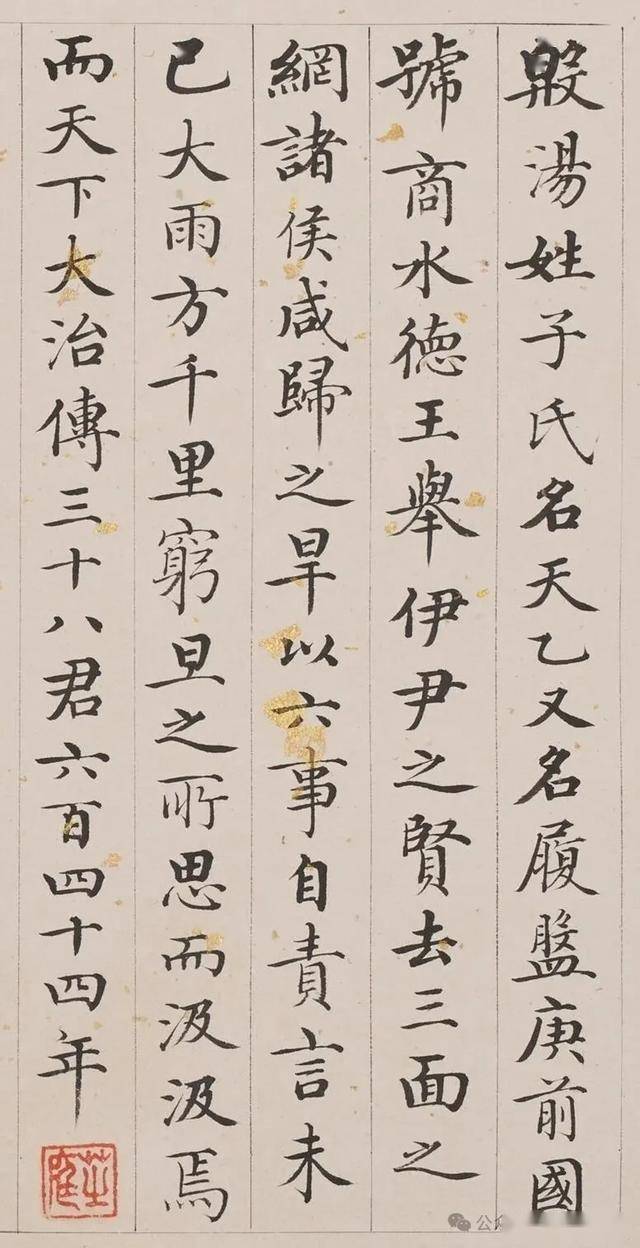 殷湯姓子氏名天乙又名履盤庚前國
號商水德王舉伊尹之賢去三面之
網諸侯咸歸之旱以六事自責言未
已大雨方千里窮旦之所思而汲汲焉
而天下大治傳三十八君六百四十四年
公众